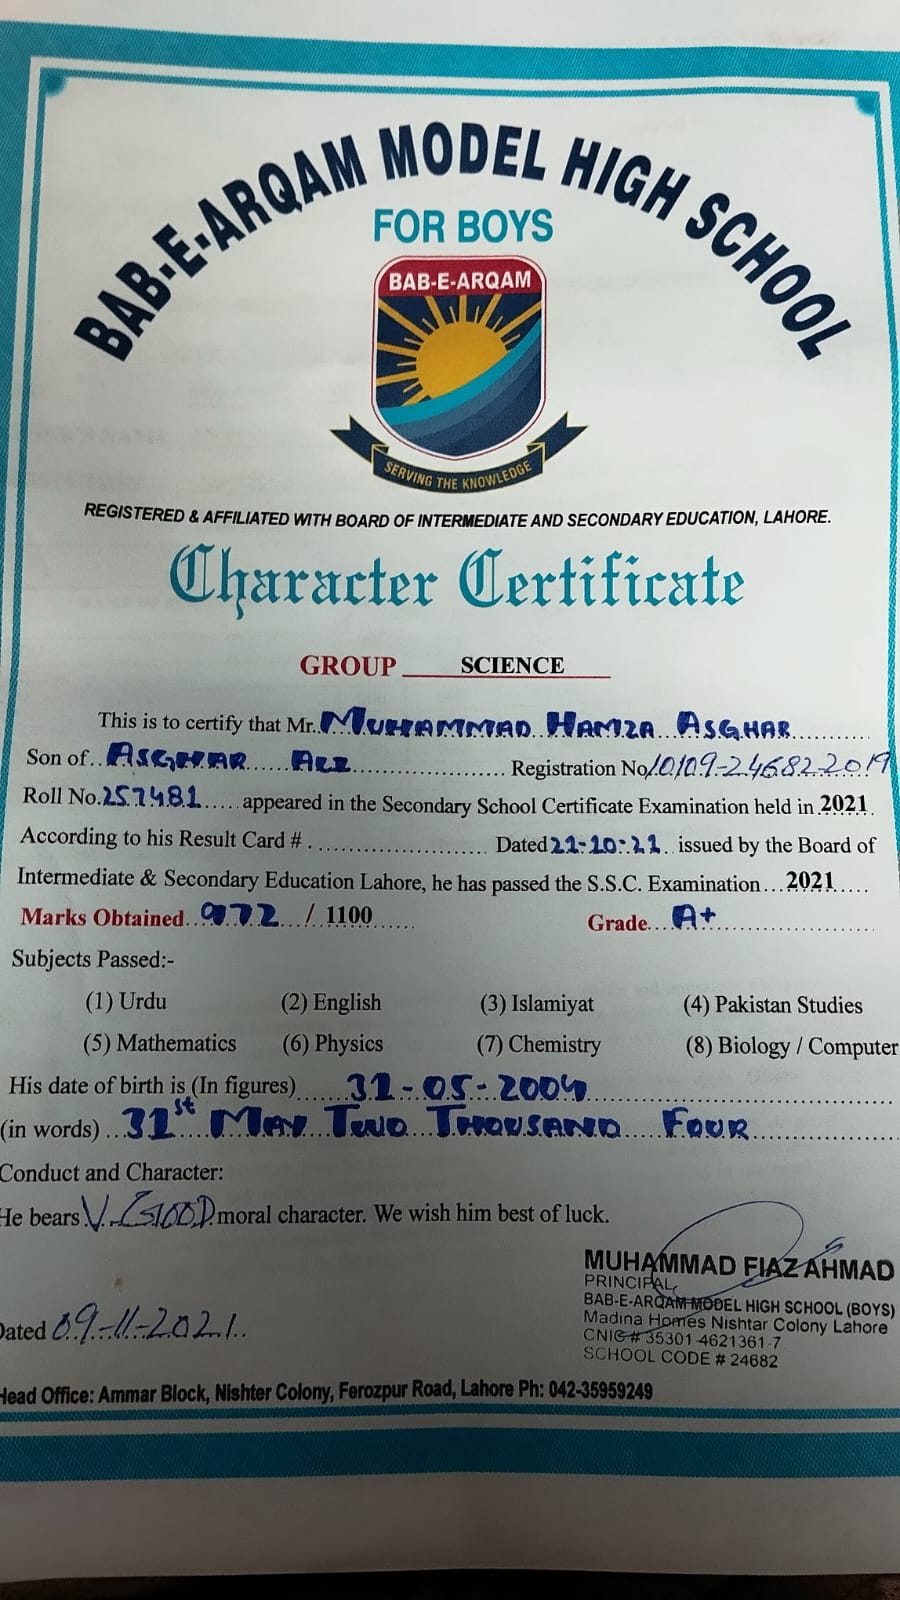 BAB-E-ARQAM MODEL HIGH SCHOOL
FOR BOYS
BAB-E-ARQAM
SERVING THE KNOWLEDGE
REGISTERED & AFFILIATED WITH BOARD OF INTERMEDIATE AND SECONDARY EDUCATION, LAHORE.
Character Certificate
GROUP SCIENCE
This is to certify that Mr. MUHAMMAD HAMZA ASGHAR
Son of ASGHAR ALI Registration No. 10109-24682-2019
Roll No. 257481 appeared in the Secondary School Certificate Examination held in 2021
According to his Result Card # Dated 21-10-21 issued by the Board of
Intermediate & Secondary Education Lahore, he has passed the S.S.C. Examination 2021
Marks Obtained 972 / 1100 Grade A+
Subjects Passed:-
(1) Urdu (2) English (3) Islamiyat (4) Pakistan Studies
(5) Mathematics (6) Physics (7) Chemistry (8) Biology / Computer
His date of birth is (In figures) 31-05-2004
(in words) 31st MAY TWO THOUSAND FOUR
Conduct and Character:
He bears V. GOOD moral character. We wish him best of luck.
MUHAMMAD FIAZ AHMAD
PRINCIPAL
BAB-E-ARQAM MODEL HIGH SCHOOL (BOYS)
Madina Homes Nishtar Colony Lahore
CNIC # 35301-4621361-7
SCHOOL CODE # 24682
Dated 09-11-2021
Head Office: Ammar Block, Nishter Colony, Ferozpur Road, Lahore Ph: 042-35959249